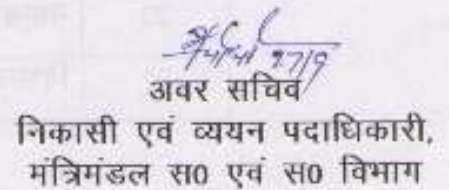 27/9
अवर सचिव
निकासी एवं व्ययन पदाधिकारी,
मंत्रिमंडल स0 एवं स0 विभाग